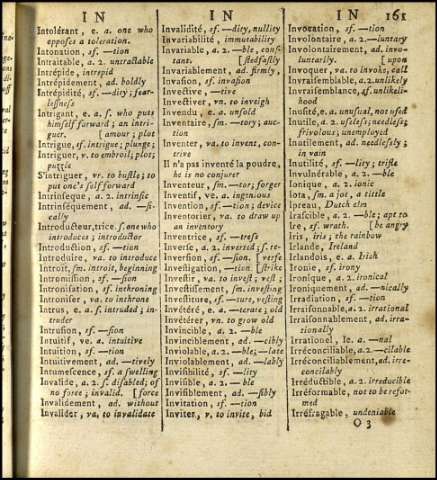 IN
IN
IN 161
Intolérant, e. a. one who
opposes a toleration.
Intonation, sf. —tion
Intraitable, a. 2. untractable
Intrépide, intrepid
Intrépidement, ad. boldly
Intrépidité, sf. —dity; fear-
lessness
Intrigant, e. a. s. who puts
himself forward; an intri-
guer. [amour; plot
Intrigue, sf. intrigue; plunge;
Intriguer, v. to embroil; plot;
puzzle
S'intriguer, vr. to bustle; to
put one's self forward
Intrinsèque, a. 2. intrinsic
Intrinsèquement, ad. —si-
cally
Introducteur, trice. s. one who
introduces; introductor
Introduction, sf. —tion
Introduire, va. to introduce
Introit, sm. introit, beginning
Intromission, sf. —sion
Intronisation, sf. inthroning
Introniser, va. to inthrone
Intrus, e. a. s. intruded; in-
truder
Intrusion, sf. —sion
Intuitif, ve. a. intuitive
Intuition, sf. —tion
Intuitivement, ad. —tively
Intumescence, sf. a swelling
Invalide, a. 2. s. disabled; of
no force; invalid. [force
Invalidement, ad. without
Invalider, va. to invalidate
Invalidité, sf. —dity, nullity
Invariabilité, immutability
Invariable, a. 2. —ble, conf-
tant. [stedfastly
Invariablement, ad. firmly,
Invasion, sf. invasion
Invective, —tive
Invectiver, vn. to inveigh
Invendu, e. a. unsold
Inventaire, sm. —tory; auc-
tion
Inventer, va. to invent, con-
trive
Il n'a pas inventé la poudre,
he is no conjurer
Inventeur, sm. —tor; forger
Inventif, ve. a. ingenious
Invention, sf. —tion; device
Inventorier, va. to draw up
an inventory
Inventrice, sf. —tress
Inverse, a. 2. inversed; s. re-
Inversion, sf. —sion. [verse
Investigation, —tion. [strike
Investir, va. to invest; vest;
Investissement, sm. investing
Investiture, sf. —ture, vesting
Invétéré, e. a. —terate; old
Invétérer, vn. to grow old
Invincible, a. 2. —ble
Invinciblement, ad. —cibly
Inviolable, a. 2. —ble; —late
Inviolablement, ad. —lably
Invisibilité, sf. —lity
Invisible, a. 2. —ble
Invisiblement, ad. —sibly
Invitation, sf. —tion
Inviter, v. to invite, bid
Invocation, sf. —tion
Involontaire, a. 2. —luntary
Involontairement, ad. invo-
luntarily. [upon
Invoquer, va. to invoke, call
Invraisemblable, a. 2. unlikely
Invraisemblance, sf. unlikeli-
hood
Inusité, e. a. unusual, not used
Inutile, a. 2. useless; needless;
frivolous, unemployed
Inutilement, ad. needlessly;
in vain
Inutilité, sf. —lity; trifle
Invulnérable, a. 2. —ble
Ionique, a. 2. ionic
Iota, sm. a jot, a tittle
Ipreau, Dutch elm
Irascible, a. 2. —ble; apt to
Ire, sf. wrath. [be angry
Iris, iris; the rainbow
Irlande, Ireland
Irlandois, e. a. Irish
Ironie, sf. irony
Ironique, a. 2. ironical
Ironiquement, ad. —nically
Irradiation, sf. —tion
Irraisonnable, a. 2. irrational
Irraisonnablement, ad. irra-
tionally
Irrationel, le. a. —nal
Irréconciliable, a. 2. —cilable
Irréconciliablement, ad. irre-
concilably
Irréductible, a. 2. irreducible
Irréformable, not to be refor-
med
Irréfragable, undeniable
O 3